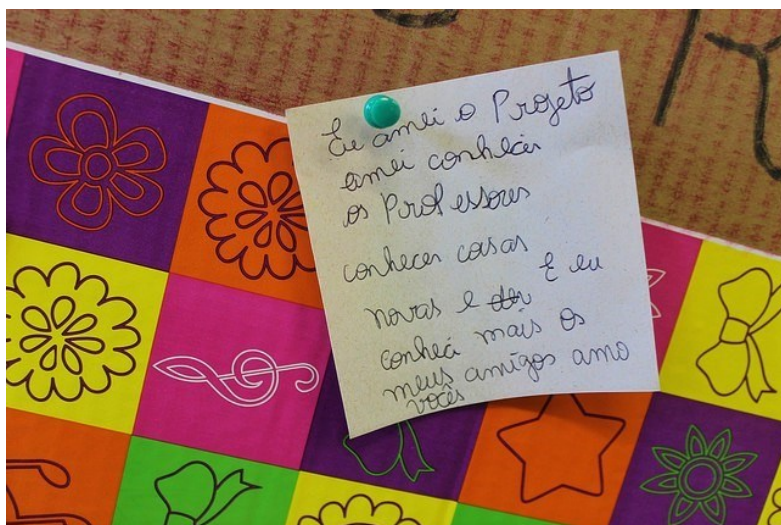 Eu amei o Projeto
amei conhecer
os Professores
conhecer cosas
novas e E eu
conheci mais os
meus amigos amo
vocês